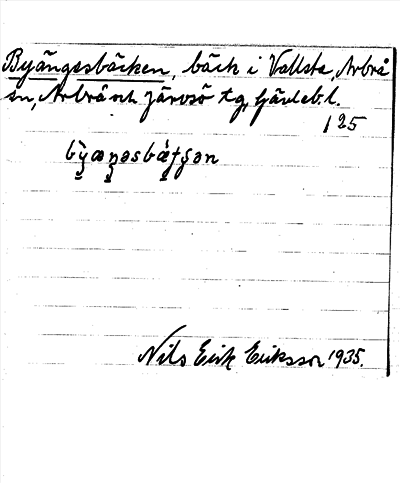 Byängsbäcken, bäck i Vallsta, Arbrå
sn, Arbrå och Järvsö tg, Gävleb. l.
125
Nils Erik Eriksson 1935.